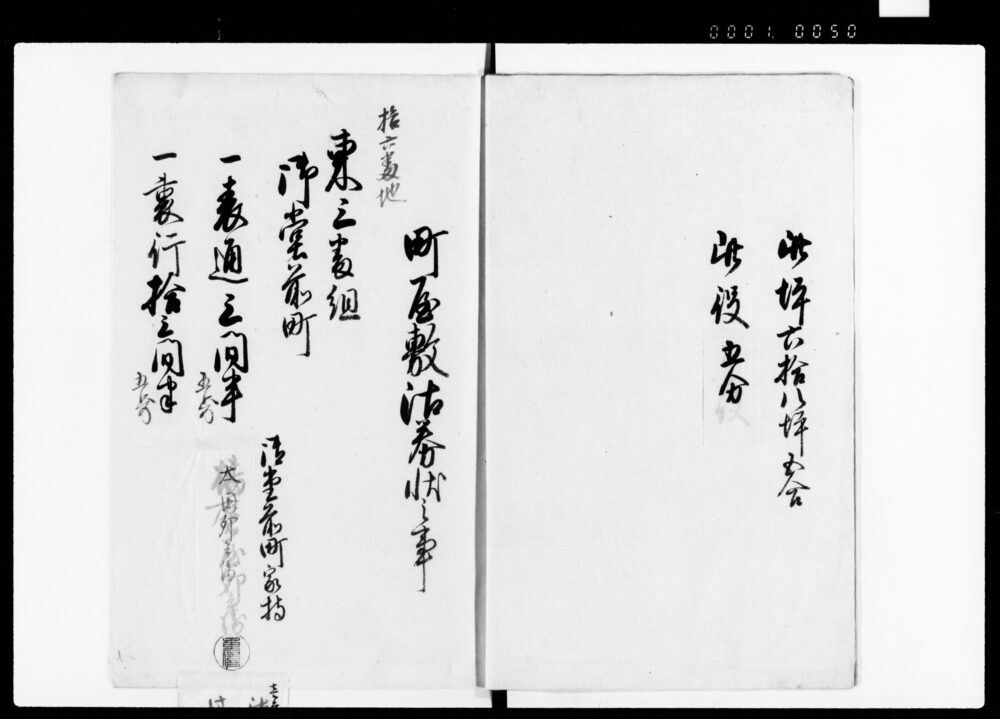 0001. 0050
此坪六拾八坪五合
此役五分
町屋敷沽券状之事
拾六番地
東三番組
御堂前町
一表通三間半
五歩
一裏行拾三間半
五歩
御堂前町家持